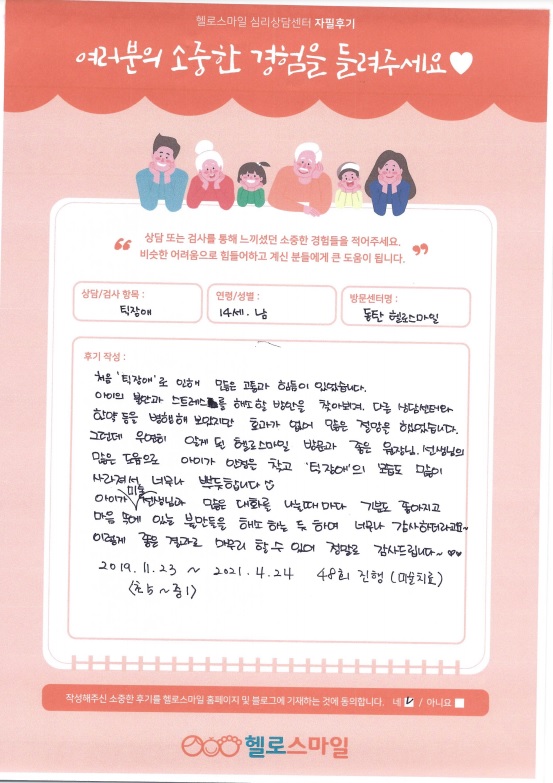 헬로스마일 심리상담센터 자필후기
여러분의 소중한 경험을 들려주세요♥
상담 또는 검사를 통해 느끼셨던 소중한 경험들을 적어주세요.
비슷한 어려움으로 힘들어하고 계신 분들에게 큰 도움이 됩니다.
상담/검사 항목 :
틱장애
연령/성별 :
14세. 남
방문센터명 :
동탄 헬로스마일
후기 작성 :
처음 '틱장애'로 인해 많은 고통과 힘듦이 있었습니다.
아이의 불안과 스트레스를 해소할 방안을 찾아보며, 다른 상담센터와
한약 등을 병행해 보았지만 효과가 없어 많은 절망을 했었습니다.
그런데 우연히 알게 된 헬로스마일 방문과 좋은 원장님, 선생님의
많은 도움으로 아이가 안정을 찾고 '틱장애'의 모습도 많이
사라져서 너무나 뿌듯합니다
아이가 미술선생님과 많은 대화를 나눌때마다 기분도 좋아지고
마음 속에 있는 불만들을 해소하는 듯 하며 너무나 감사하더라고요~
이렇게 좋은 결과로 마무리 할 수 있어 정말로 감사드립니다~ ♡♡
2019. 11. 23 ~ 2021. 4. 24 48회 진행 (미술치료)
<초5 ~ 중1>
작성해주신 소중한 후기를 헬로스마일 홈페이지 및 블로그에 기재하는 것에 동의합니다. 네 ☑ / 아니요 □
헬로스마일